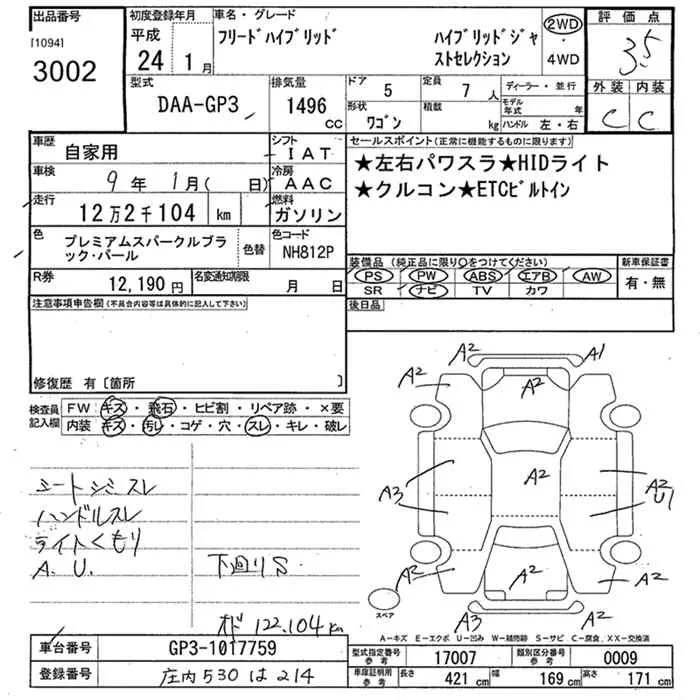 出品番号
[1094]
3002
初度登録年月
平成
24 1月
車名・グレード
フリードハイブリッド
ハイブリッドジャ
ストセレクション
2WD
・
4WD
評価点
3.5
外装 内装
C C
型式
DAA-GP3
排気量
1496
CC
ドア
5
定員
7 人
形状
ワゴン
積載
kg
ディーラー・並行
モデル
年式 年
ハンドル 左・右
車歴
自家用
シフト
IAT
車検
9年 1月( 日)
冷房
AAC
走行
12万2千104 km
燃料
ガソリン
色
プレミアムスパークルブラ
ック・パール
色替
色コード
NH812P
R券
12,190円
名変通知期限
月 日
セールスポイント(正常に機能するものに限ります)
★左右パワスラ★HIDライト
★クルコン★ETCビルトイン
装備品(純正品に限り○をつけてください)
PS PW ABS エアB AW
SR ナビ TV カワ
新車保証書
有・無
後日品
注意事項申告欄(不具合内容等は具体的に記入して下さい)
修復歴 有〔箇所 〕
検査員
記入欄
FW キズ・飛石・ヒビ割・リペア跡・×要
内装 キズ・汚レ・コゲ・穴・スレ・キレ・破レ
シートシミスレ
ハンドルスレ
ライトくもり
A.U. 下廻りS
オド 122,104km
A2 A1
A2 A2 A2
A3 A2 A2
U1
A2 A2 A2
A3 A2
スペア
A-キズ E-エクボ U-凹み W-補修跡 S-サビ C-腐食、XX-交換済
車台番号
GP3-1017759
登録番号
庄内530は214
型式指定番号
参考
17007
類別区分番号
参考
0009
車庫証明用
参考
長さ
421cm
幅
169cm
高さ
171cm